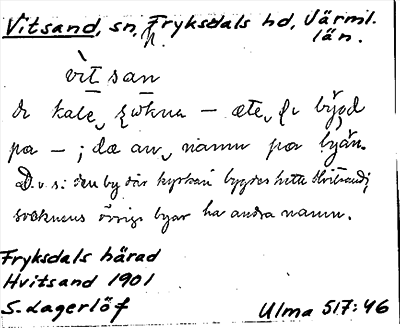 Vitsand, sn, Fryksdals hd, Värml.
län.
vìt san
de kale, — æte, de
pa — ; dæ namn pa byän.
D.v.s: den by där kyrkan bygdes hette Hvitsand;
socknens övriga byar ha andra namn.
Fryksdals härad
Hvitsand 1901
S. Lagerlöf
Ulma 517:46